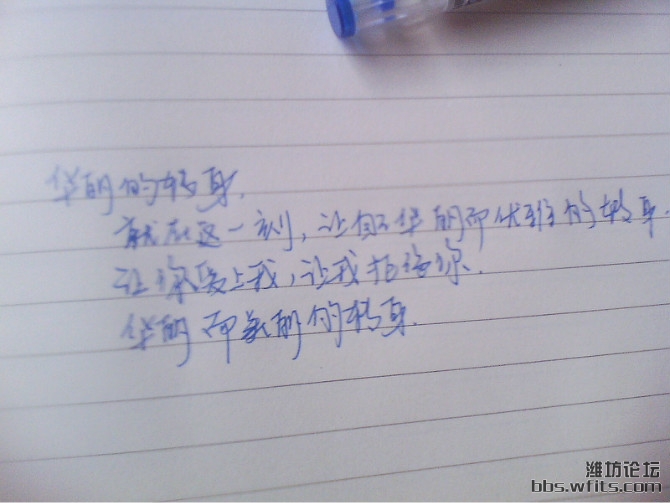 华丽的转身.
就在这一刻，让自己华丽而优雅的转身
让你爱上我，让我拍给你.
华丽而美丽的转身.
潍坊论坛
bbs.wfits.com